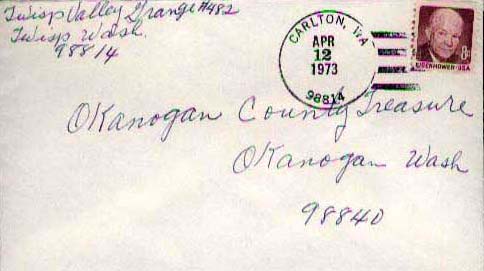 Twisp Valley Grange #482
Twisp Wash.
98814
CARLTON, WA
APR
12
1973
98814
8c
EISENHOWER·USA
Okanogan County Treasure
Okanogan Wash
98840